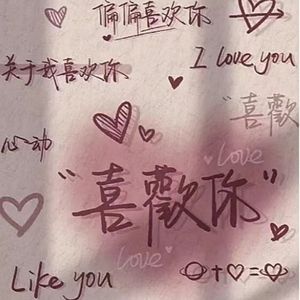 偏偏喜欢你
关于我喜欢你
I love you
"喜歡
心动
Love
"喜歡你"
Love
Like you
+ =